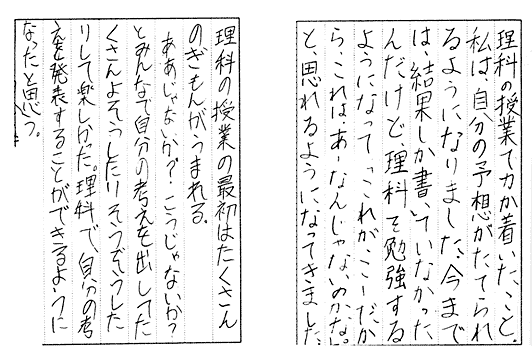 理科の授業で力が着いたこと。
私は、自分の予想がたてられ
るようになりました。今まで
は、結果しか書いていなかった
んだけど、理科を勉強する
ようになって「これが、こーだか
ら、これは、あーなんじゃないのかな。」
と、思れるようになってきました。
理科の授業の最初はたくさん
のぎもんがうまれる。
ああじゃないか?こうじゃないか?
とみんなで自分の考えを出してた
くさんよそうしたりそうぞうした
りして楽しかった。理科で、自分の考
えを発表することができるように
なったと思う。